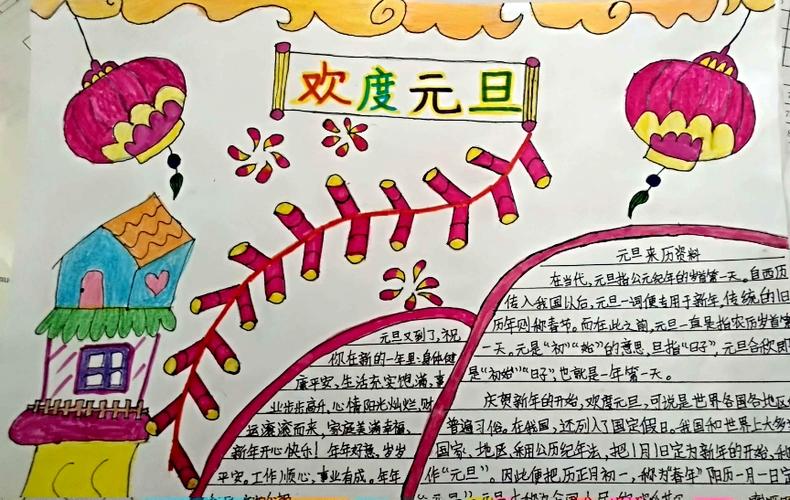 欢度元旦
元旦又到了,祝
你在新的一年里:身体健
康平安,生活充实饱满,事
业步步高升,心情阳光灿烂,财
运滚滚而来,家庭美满幸福,
新年开心快乐!年年好意,岁岁
平安。工作顺心,事业有成。年年
元旦来历资料
在当代,元旦指公元纪年的岁首第一天。自西历
传入我国以后,元旦一词便专用于新年,传统的旧
历年则称春节。而在此之前,元旦一直是指农历岁首第
一天。元是“初”“始”的意思,旦指“日子”,元旦合称即
是“初始”“日子”,也就是一年第一天。
庆贺新年的开始,欢度元旦,可说是世界各国各地区
普遍习俗。在我国,还列入了国定假日。我国和世界上大多
国家、地区,采用公历纪年法,把1月1日定为新年的开始,称
作“元旦”。因此便把历正月初一,称为“春年”阳历一月一日定